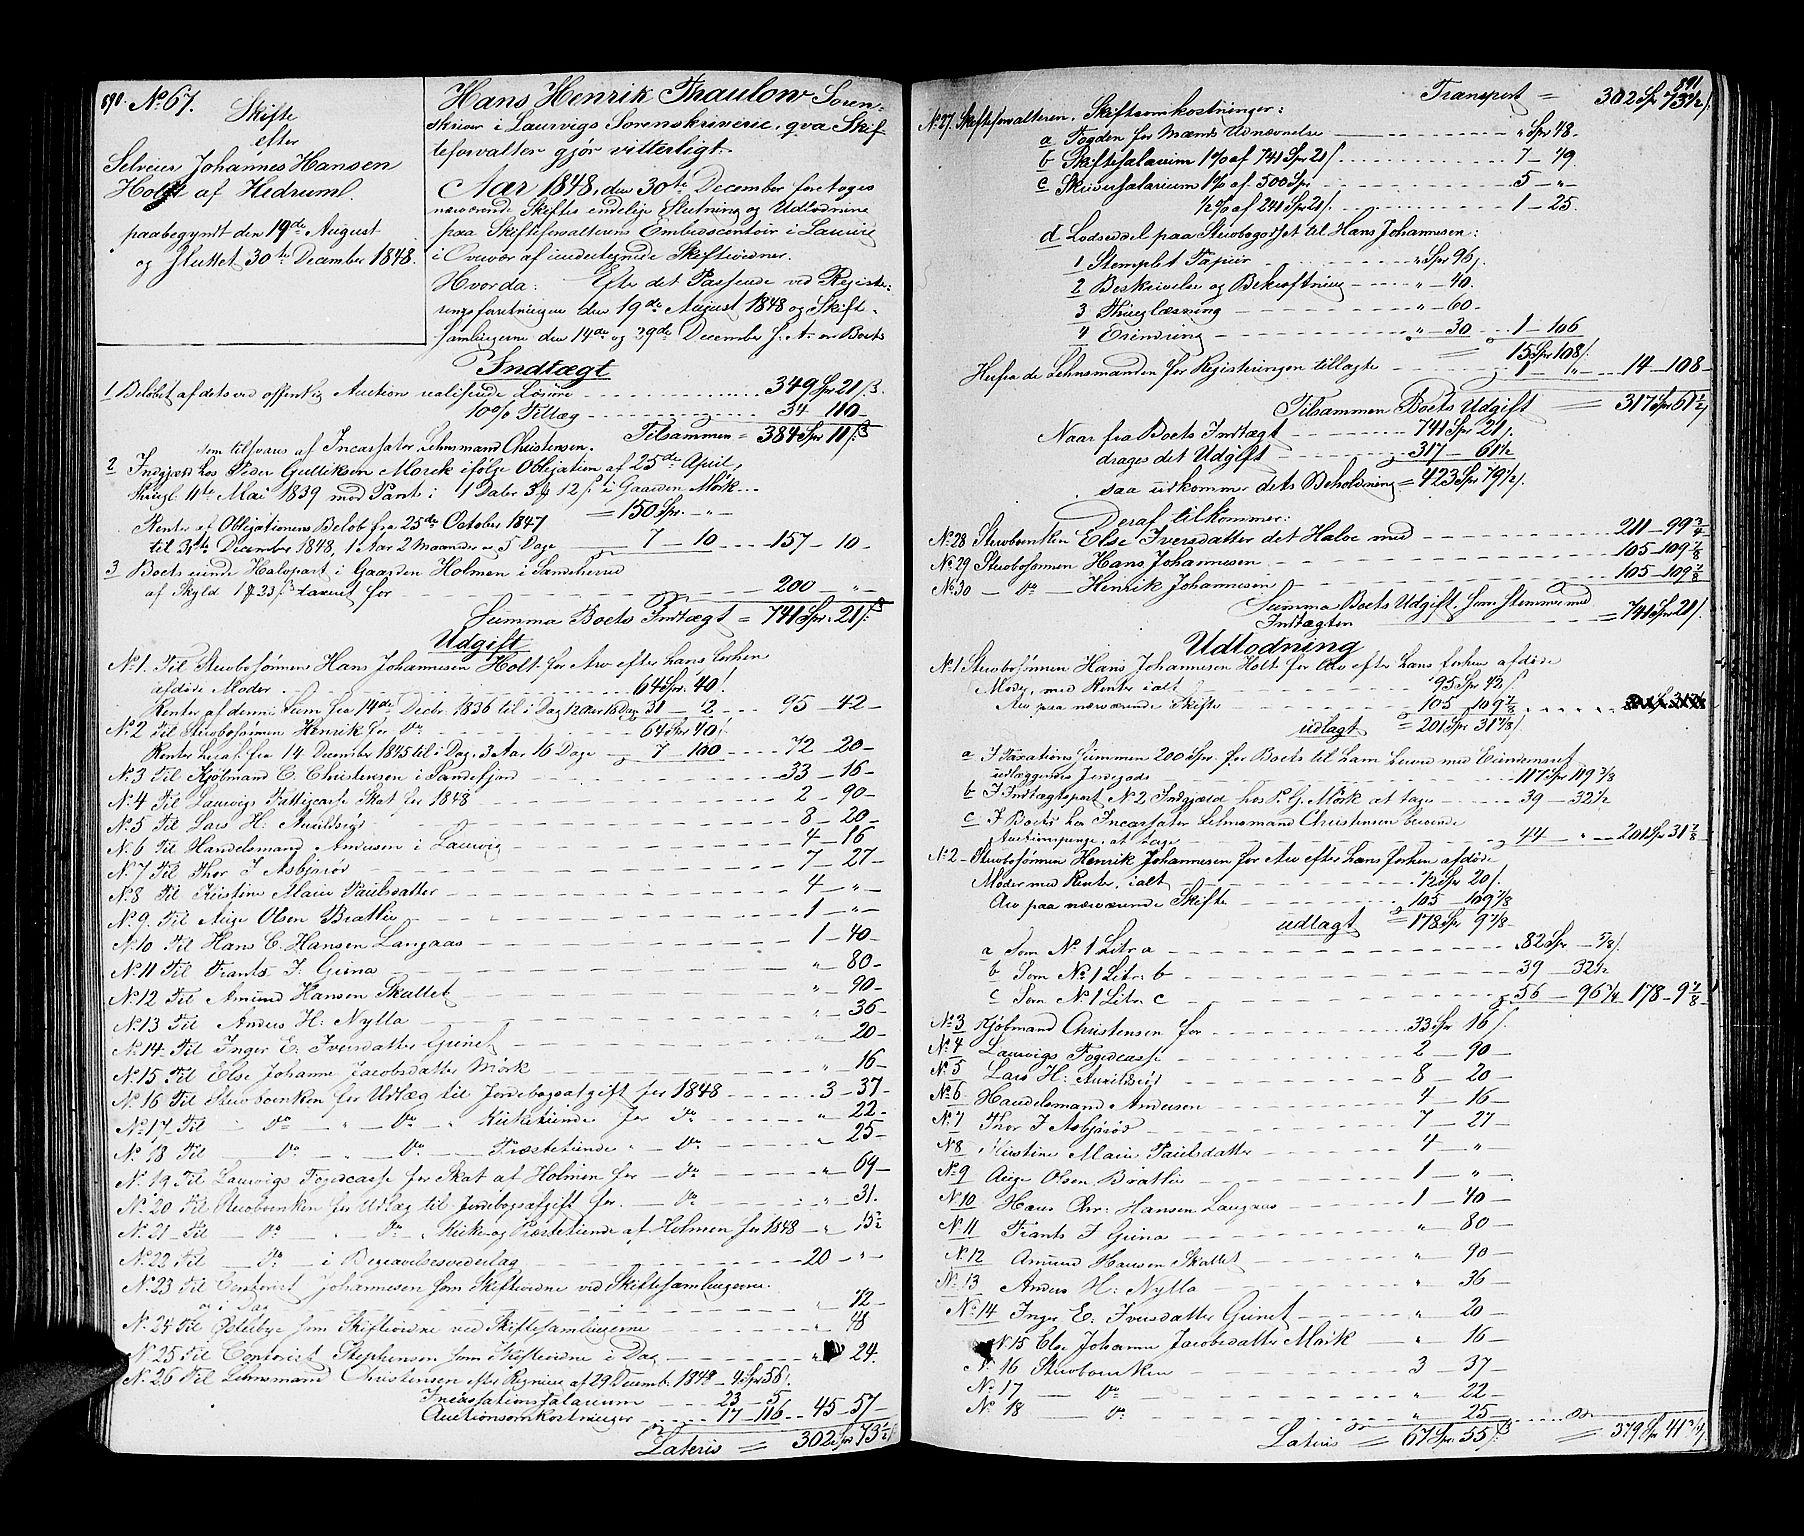 890. No 67.
Skifte
efter
Selveier Johannes Hansen
Holt af Hedrum.
paabegyndt den 19de August
og sluttet 30te December 1848.
Hans Henrik Thaulow Soren-
skriver i Laurvigs Sorenskriverie, qva Skif
teforvalter gjør vitterligt.
Aar 1848, den 30te December foretoges
nærværende Skiftes endelige Slutning og Udlodning
paa Skifteforvalterens Embedscontoir i Laurvig
i Overvær af undertegnede Skiftevidner.
Hvorda: Efter det Passerede ved Registe-
ringsforretningen den 19de August 1848 og Skift-
samlingerne den 14de og 29de December s. A. er Boets
Indtægt
1 Beløbet af det ved offentlig Auction realiserede Løsøre 349 Spr 21 ß.
10% Tillæg 34 - 110 -
Tilsammen = 384 Spr 11 ß
som tilsvares af Incassator, Lehnsmand Christensen.
2 Indgjæld hos Peder Gulliksen Mørck ifølge Obligation af 25de April,
thingl. 11te Mai 1839 med Pant i 1 Daler 3 12 ß i Gaarden Mørk
= 150 Spr. - " -
Renter af Obligationens Beløb fra 25de October 1847
til 31te December 1848, 1 Aar 2 Maaneder 5 Dage 7 - 10 157 - 10 -
3 Boets eiende Halvpart i Gaarden Holmen i Sandeherred
af Skyld 1 23 ß taxeret for 200 - " -
Summa Boets Indtægt = 741 Spr. 21 ß
Udgift
No 1. Til Stervbosønnen Hans Johannesen Holt for Arv efter hans forhen
afdøde Moder 64 Spr. 40 !
Renter af denne Sum fra 14de Decbr 1836 til i Dag 12 Aar 16 Dage 31 - 2 95 - 42 -
No 2 Til Stervbosønnen Henrik for Do 64 Spr 40 !
Renter heraf fra 14 December 1845 til i Dag, 3 Aar 16 Dage 7 - 100 72 - 20 -
No 3 Til Kjøbmand C. Christensen i Sandefjord 33 - 16 -
No 4 Til Laurvigs Fattigcasse Skat for 1848 2 - 90 -
No 5 Til Lars H. Auxildsrød 8 - 20 -
No 6 Til Handelsmand Andersen i Laurvig 4 - 16 -
No 7 Til Thor J Asbjørød 7 - 27 -
No 8 Til Kirstine Marie Paulsdatter 4 - " -
No 9. Til Aage Olsen Brattlie 1 - " -
No 10 Til Hans C. Hansen Langaas 1 - 40 -
No 11 Til Frants J. Grina " 80 -
No 12 Til Amund Hansen Skallet " 90 -
No 13 Til Anders H. Nylla " 36 -
No 14 Til Inger E. Iversdatter Grinet " 20 -
No 15 Til Else Johanne Jacobsdatter Mørk " 16 -
No 16 Til Stervboenken for Udlæg til Jordebogsafgift for 1848 3 - 37 -
No 17 Til Do " Do " Kirketiende for Do " 22 -
No 18 Til Do " Do Præstetiende " Do " 25 -
No 19 Til Laurvigs Fogedcasse for Skat af Holmen for Do " 69 -
No 20 Til Stervboenken for Udlæg til Jordebogsafgift for Do " 31.
No 21 Til Do " Do " Kirke- og Præstetiende af Holmen for 1848 " 15½
No 22 Til Do i Begravelsesvederlag 20 - " -
No 23 Til Contorist Johannesen som Skiftevidne ved Skiftesamlingerne
og i Dag " 72 -
No 24 Til Østerbye som Skiftevidne ved Skiftesamlingerne " 48
No 25 Til Contorist Stephensen som Skiftevidne i Dag " 24.
No 26 Til Lehnsmand Christensen efter Regning af 29 Decemb. 1848 - 4 Spr 56 !.
Incassationssalarium 23 - 5
Auctionsomkostninger 17 - 116 45 - 57 -
Lateris = 302 Spr 73½
891.
Transport = 302 Spr 73½ ß.
No 27. Skifteforvalteren, Skifteomkostninger:
a Fogden for Mænds Udnævnelse " Spr 48 -
b Skiftesalarium 1% af 741 Spr 21 ß 7 - 49.
c Skriversalarium 1% af 500 Spr 5 - " -
½% af 241 Spr 21 ß. 1 - 25.
d Lodseddel paa Stervbogodset til Hans Johannesen:
1 Stemplet Papiir " Spr 96.
2 Beskrivelse og Bekræftning " - 40.
3 Thinglæsning " - 60 -
4 Erindring " - 30 1 - 106
= 15 Spr 108 ß
Herfra de Lehnsmanden for Registeringen tillagte 1 - " 14 - 108 -
Tilsammen Boets Udgift = 317 Spr 61½
Naar fra Boets Indtægt 741 Spr 21.
drages det Udgift 317 - 61½
saa udkommer dets Beholdning = 423 Spr 79½
Deraf tilkommer:
No 28 Stervboenken Else Iversdatter det Halve med 211 - 99¾
No 29 Stervbosønnen Hans Johannesen 105 - 109⅞
No 30 Do Henrik Johannesen 105 - 109⅞
Summa Boets Udgift, som stemmer med
Indtægten = 741 Spr 21 ß.
Udlodning
No 1 Stervbosønnen Hans Johannesen Holt for Arv efter hans forhen afdøde
Moder, med Renter ialt 95 Spr 42 ß
Arv paa nærværende Skifte 105 - 109⅞
udlagt = 201 Spr 31⅞
a I Taxations Summen 200 Spr. for Boets til ham hermed med Eiendomsret
udlæggende Jordegods 117 Spr 119⅜
b I Indtægtspost No 2 Indgjæld hos P. G. Mörk at tage 39 - 32½
c I Boets hos Incassator Lehnsmand Christensen beroende
Auctionspenge, at tage 44 " 201 Spr 31⅞
No 2 - Stervbosønnen Henrik Johannesen for Arv efter hans forhen afdøde
Moder med Renter, ialt 72 Spr 20 ß
Arv paa nærværende Skifte 105 - 109⅞
udlagt = 178 Spr 9⅞ -
a Som No 1 Litr a 82 Spr - ⅝ ß.
b Som No 1 Litr. b 39 - 32½
c Som No 1 Litr. c 56 - 96¼ 178 - 9⅞
No 3 Kjøbmand Christensen for 33 Spr 16 ß.
No 4 Laurvigs Fogedcasse 2 - 90 -
No 5 Lars H. Auxildsrød 8 - 20 -
No 6 Handelsmand Andersen 4 - 16 -
No 7 Thor J Asbjørød 7 - 27 -
No 8 Kirstine Marie Paulsdatter 4 - " -
No 9 Aage Olsen Brattlie 1 - " -
No 10 Hans Chr. Hansen Langaas 1 - 40 -
No 11 Frants J Grina " 80 -
No 12 Amund Hansen Skallet " 90 -
No 13 Anders H. Nylla " 36 -
No 14 Inger E. Iversdatter Grinet " 20 -
No 15 Else Johanne Jacobsdatter Mörk " 16 -
No 16 Stervboenken 3 - 37 -
No 17 Do " 22 -
No 18 Do " 25 -
Lateris = 67 Spr. 55 ß = 379 Spr 41¾